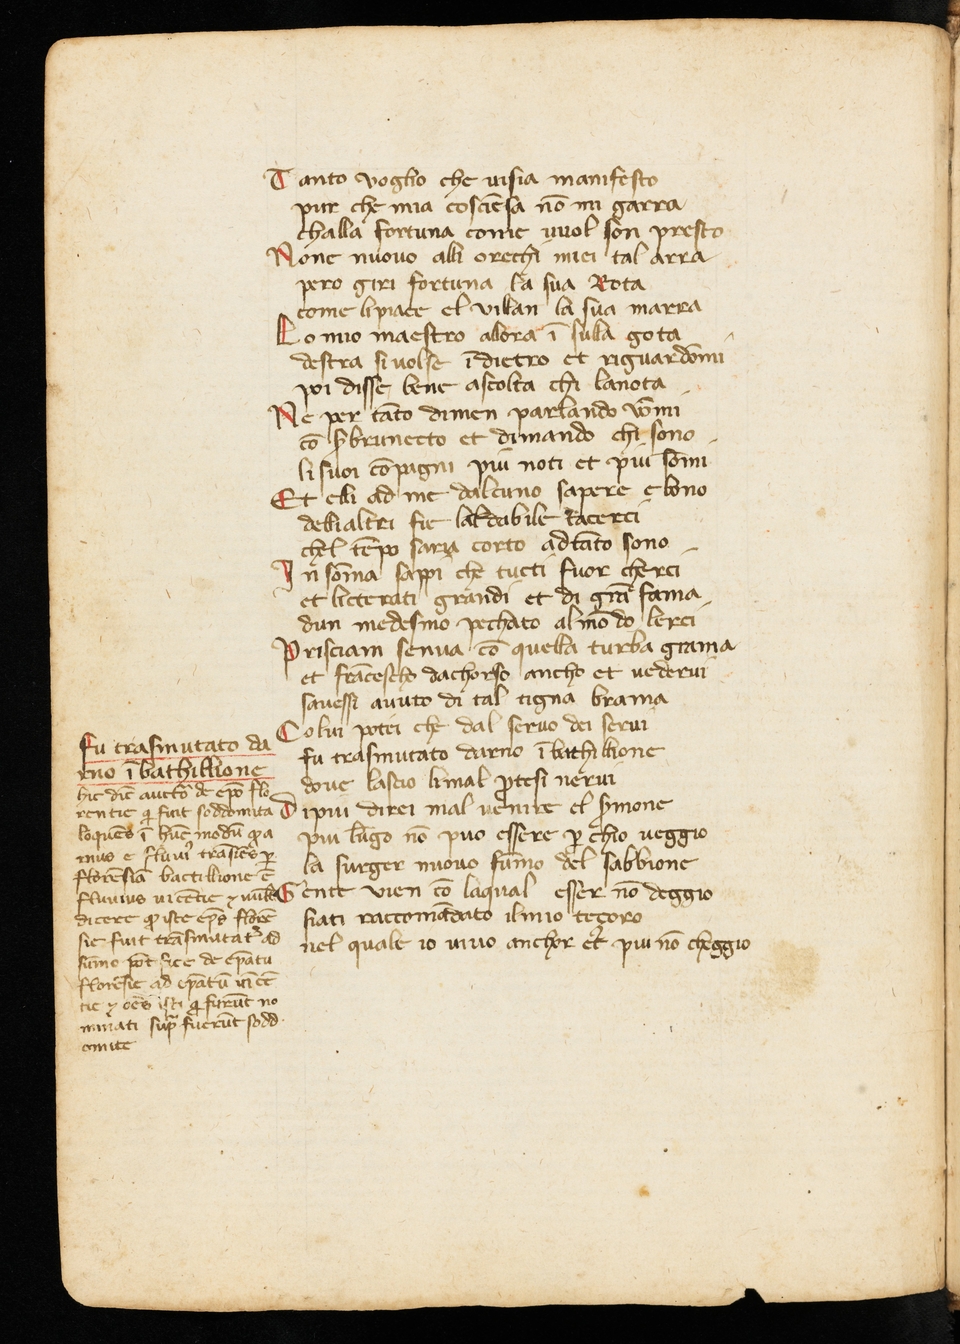 Tanto voglio che uisia manifesto
pur che mia cosciẽsa nõ mi garra
challa fortuna come uuol son presto
None nuouo alli orechi miei tal arra
pero giri fortuna la sua Rota
come lipiace el uillan la sua marra
Lo mio maestro allora ĩ sulla gota
destra si uolse ĩdietro et riguardõmi
poi disse bene ascolta chi lanota
Ne per tãto dimen parlando võmi
cõ s̃ brunecto et dimando chi sono
li suoi cõpagni piu noti et piu sõmi
Et elli ad me dalcuno sapere e bono
delli altri fie laldabile tacerci
chel tẽpo saria corto ad tãto sono
In sõma sappi che tucti fuor cherci
et licterati grandi et di grã fama
dun medesmo pechato al mõdo lerci
Prisciam senua cõ quella turba grama
et frãcescho dachorso ancho et uederui
sauessi auuto di tal tigna brama
Colui potei che dal seruo dei serui
fu trasmutato darno ĩ bathillione
doue lascio limal p̃tesi nerui
Dipiu direi mal uenire el s̃mone
piu lũgo nõ puo essere p̱ chio ueggio
la surger nuouo fũmo del sabbione
Gente uien cõ laqual esser nõ deggio
siati raccomãdato il mio teçoro
nel quale io uiuo anchor et piu nõ cheggio
fu trasmutato da
rno ĩ bathillione
hic dic̃ auctõ de epõ flo
rentie q̃ fuit soddomita
loquẽs ĩ hũc modũ
florẽsiã bactillione ẽ
fluuius uicẽtie
dicere iste ep̃s florẽ
sie fuit trãsmutat᷒ ad
de ep̃atu
florẽsie ad ep̃atũ uicẽ
tie isti q̃ furũt no
minati sup̃ fuerũt sodd
omite